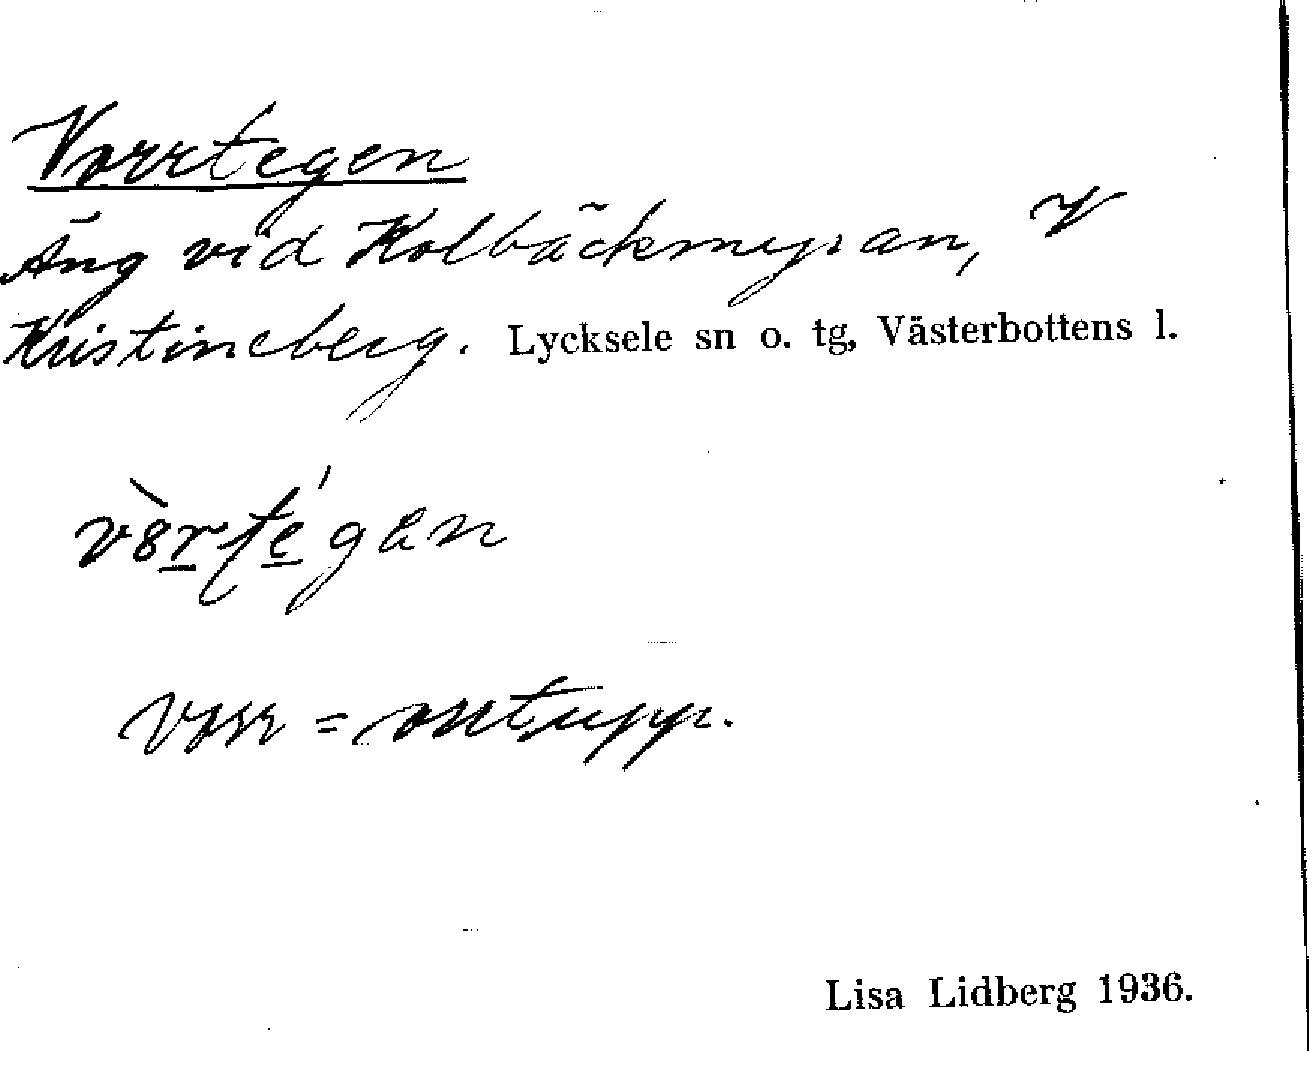 Vorrtegen
Äng vid Kolbäckmyran, V
Kristineberg. Lycksele sn o. tg, Västerbottens l.
vorr = orrtupp.
Lisa Lidberg 1936.